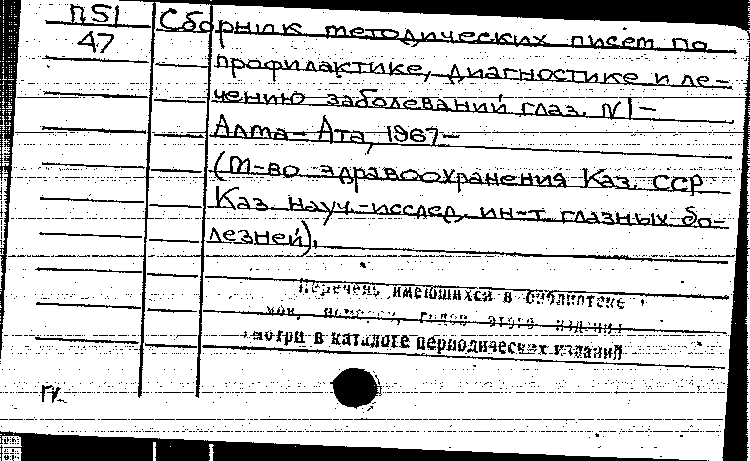 П51
47
Сборник методических писем по
профилактике, диагностике и ле-
чению заболеваний глаз. N1-
Алма-Ата, 1967-
(М-во здравоохранения Каз. ССР
Каз. науч.-исслед. ин-т глазных бо-
лезней).
Перечень имеющихся в библиотеке
годов этого издания
смотри в каталоге периодических изданий